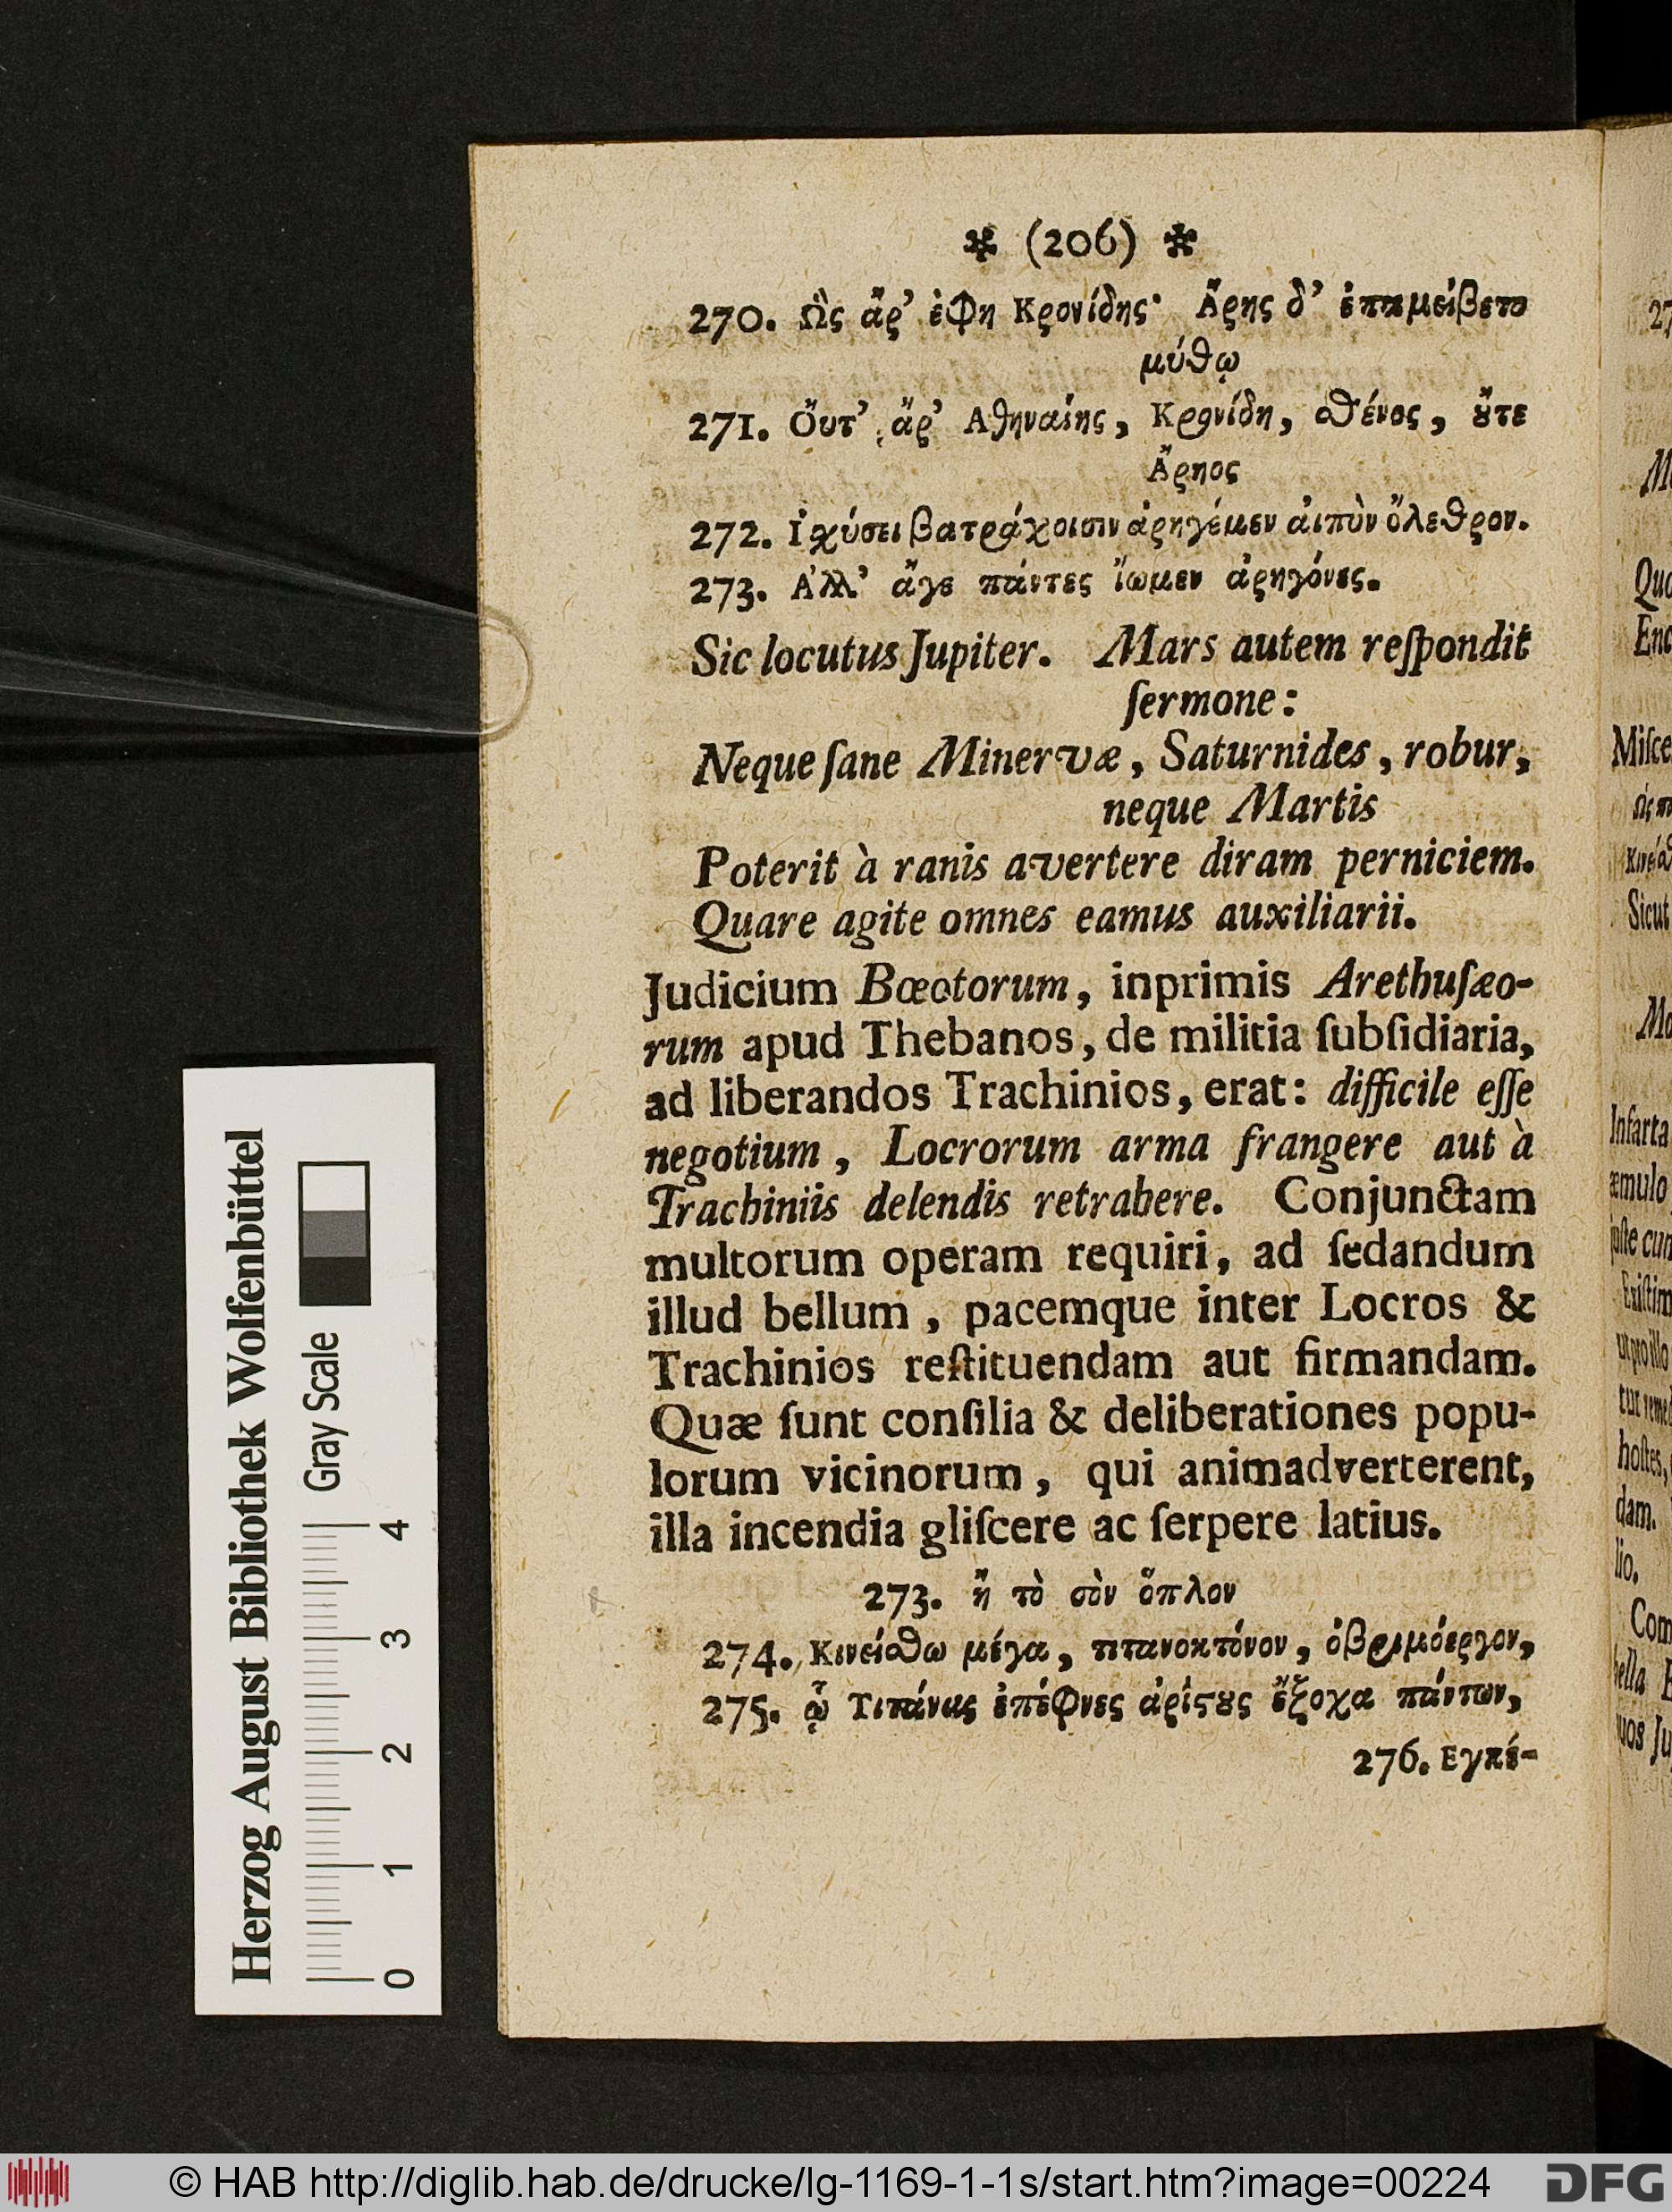 ✲ (206) ✲
270. Ὣς ἄρ’ ἐφη Κρονίδης· Ἄρης δ’ ἐπαμείβετο
μύθῳ
271. Ὄυτ’ ἄρ’ Αθηναίης, Κρονίδη, σθένος, ȣ̓́τε
Ἄρηος
272. Ἰχύσει βατράχοισιν ἀρηγέμεν ἀιπὺν ὄλεθρον.
273. Ἀλλ’ ἄγε πάντες ἴωμεν ἀρηγόνες.
Sic locutus Jupiter. Mars autem reſpondit
ſermone:
Neque ſane Minervæ, Saturnides, robur,
neque Martis
Poterit à ranis avertere diram perniciem.
Quare agite omnes eamus auxiliarii.
Judicium Bœotorum, inprimis Arethuſæo-
rum apud Thebanos, de militia ſubſidiaria,
ad liberandos Trachinios, erat: difficile eſſe
negotium, Locrorum arma frangere aut à
Trachiniis delendis retrahere. Conjunctam
multorum operam requiri, ad ſedandum
illud bellum, pacemque inter Locros &
Trachinios reſtituendam aut firmandam.
Quæ ſunt conſilia & deliberationes popu-
lorum vicinorum, qui animadverterent,
illa incendia gliſcere ac ſerpere latius.
273. ἢ τὸ σὸν ὅπλον
274. Κινείσθω μέγα, τιτανοκτόνον, ὀβριμόεργον,
275. ᾧ Τιτάνας ἐπέφνες ἀρίϛȣς ἔξοχα πάντων,
276. Εγκέ-
Herzog August Bibliothek Wolfenbüttel
Gray Scale
0 1 2 3 4
© HAB http://diglib.hab.de/drucke/lg-1169-1-1s/start.htm?image=00224
DFG